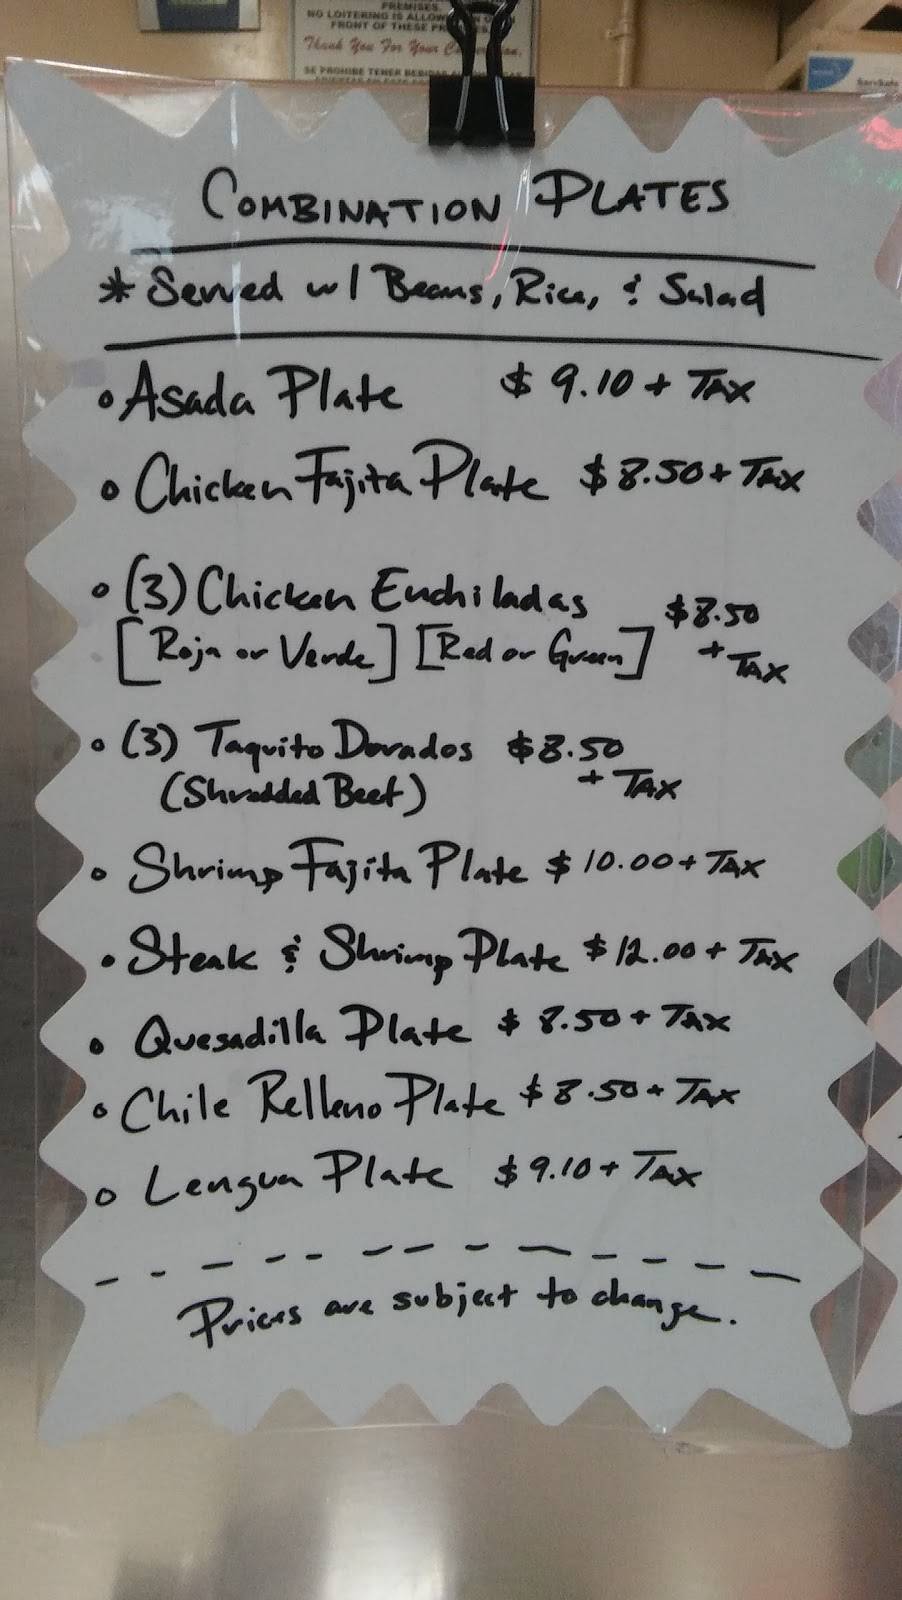 PREMISES.
NO LOITERING IS ALLOWED ON OR
FRONT OF THESE PREMISES.
Thank You For Your Cooperation.
SE PROHIBE TENER BEBIDAS
ServSafe
COMBINATION PLATES
* Served w/ Beans, Rice, & Salad
Asada Plate $ 9.10 + TAX
Chicken Fajita Plate $8.50 + TAX
(3) Chicken Enchiladas $8.50
[Roja or Verde] [Red or Green] + TAX
(3) Taquito Dorados $8.50
(Shredded Beef) + TAX
Shrimp Fajita Plate $ 10.00 + TAX
Steak & Shrimp Plate $12.00 + TAX
Quesadilla Plate $ 8.50 + TAX
Chile Relleno Plate $8.50 + TAX
Lengua Plate $9.10 + TAX
Prices are subject to change.